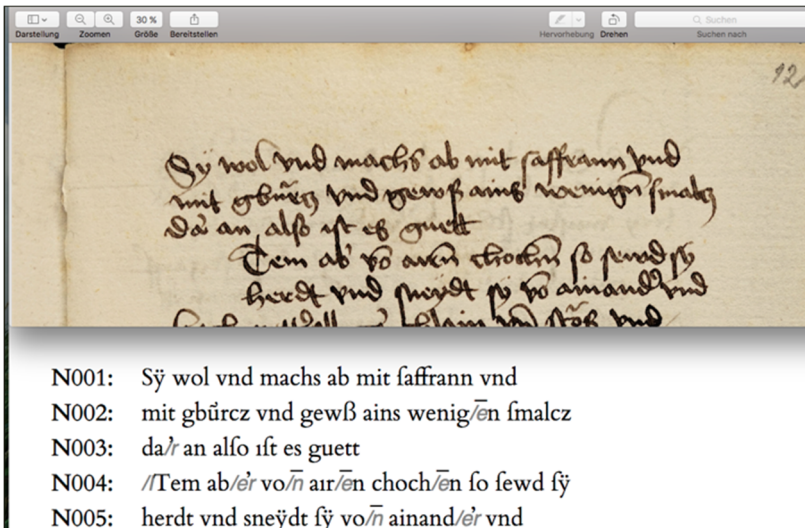 30 %
Suchen
Darstellung Zoomen Größe Bereitstellen Hervorhebung Drehen Suchen nach
12
Sÿ wol vnd machs ab mit ſaffrann vnd
mit gbűrcz vnd gewß ains wenign̄ ſmalcz
da' an alſo ıſt es guett
Tem ab' vō aırn̄ chochn̄ ſo ſewd ſÿ
herdt vnd ſneÿdt ſÿ vō ainand' vnd
klain vnd
N001: Sÿ wol vnd machs ab mit ſaffrann vnd
N002: mit gbűrcz vnd gewß ains wenig/e̅n ſmalcz
N003: da/'r an alſo ıſt es guett
N004: /ITem ab/er' vo/n̅ aır/e̅n choch/e̅n ſo ſewd ſÿ
N005: herdt vnd sneÿdt ſÿ vo/n̅ ainand/er' vnd